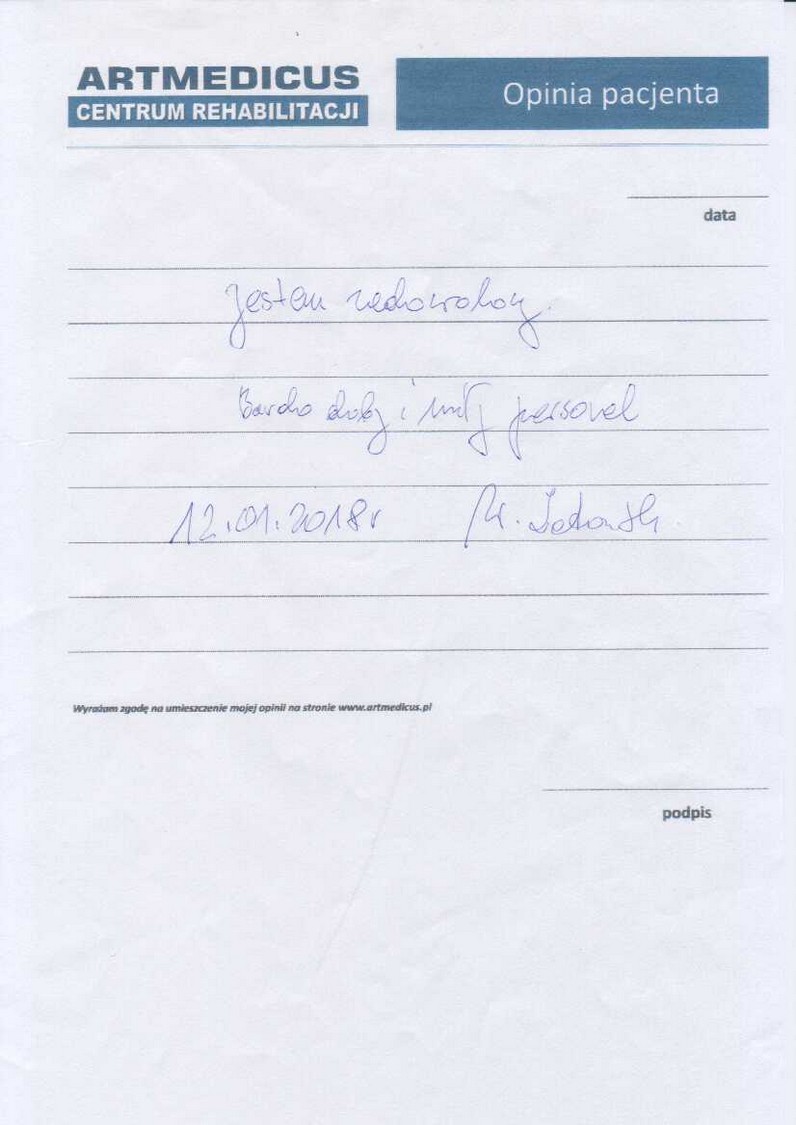 ARTMEDICUS
CENTRUM REHABILITACJI
Opinia pacjenta
data
Jestem zadowolony.
Bardzo dobry i miły personel
12.01.2018r
Wyrażam zgodę na umieszczenie mojej opinii na stronie www.artmedicus.pl
podpis